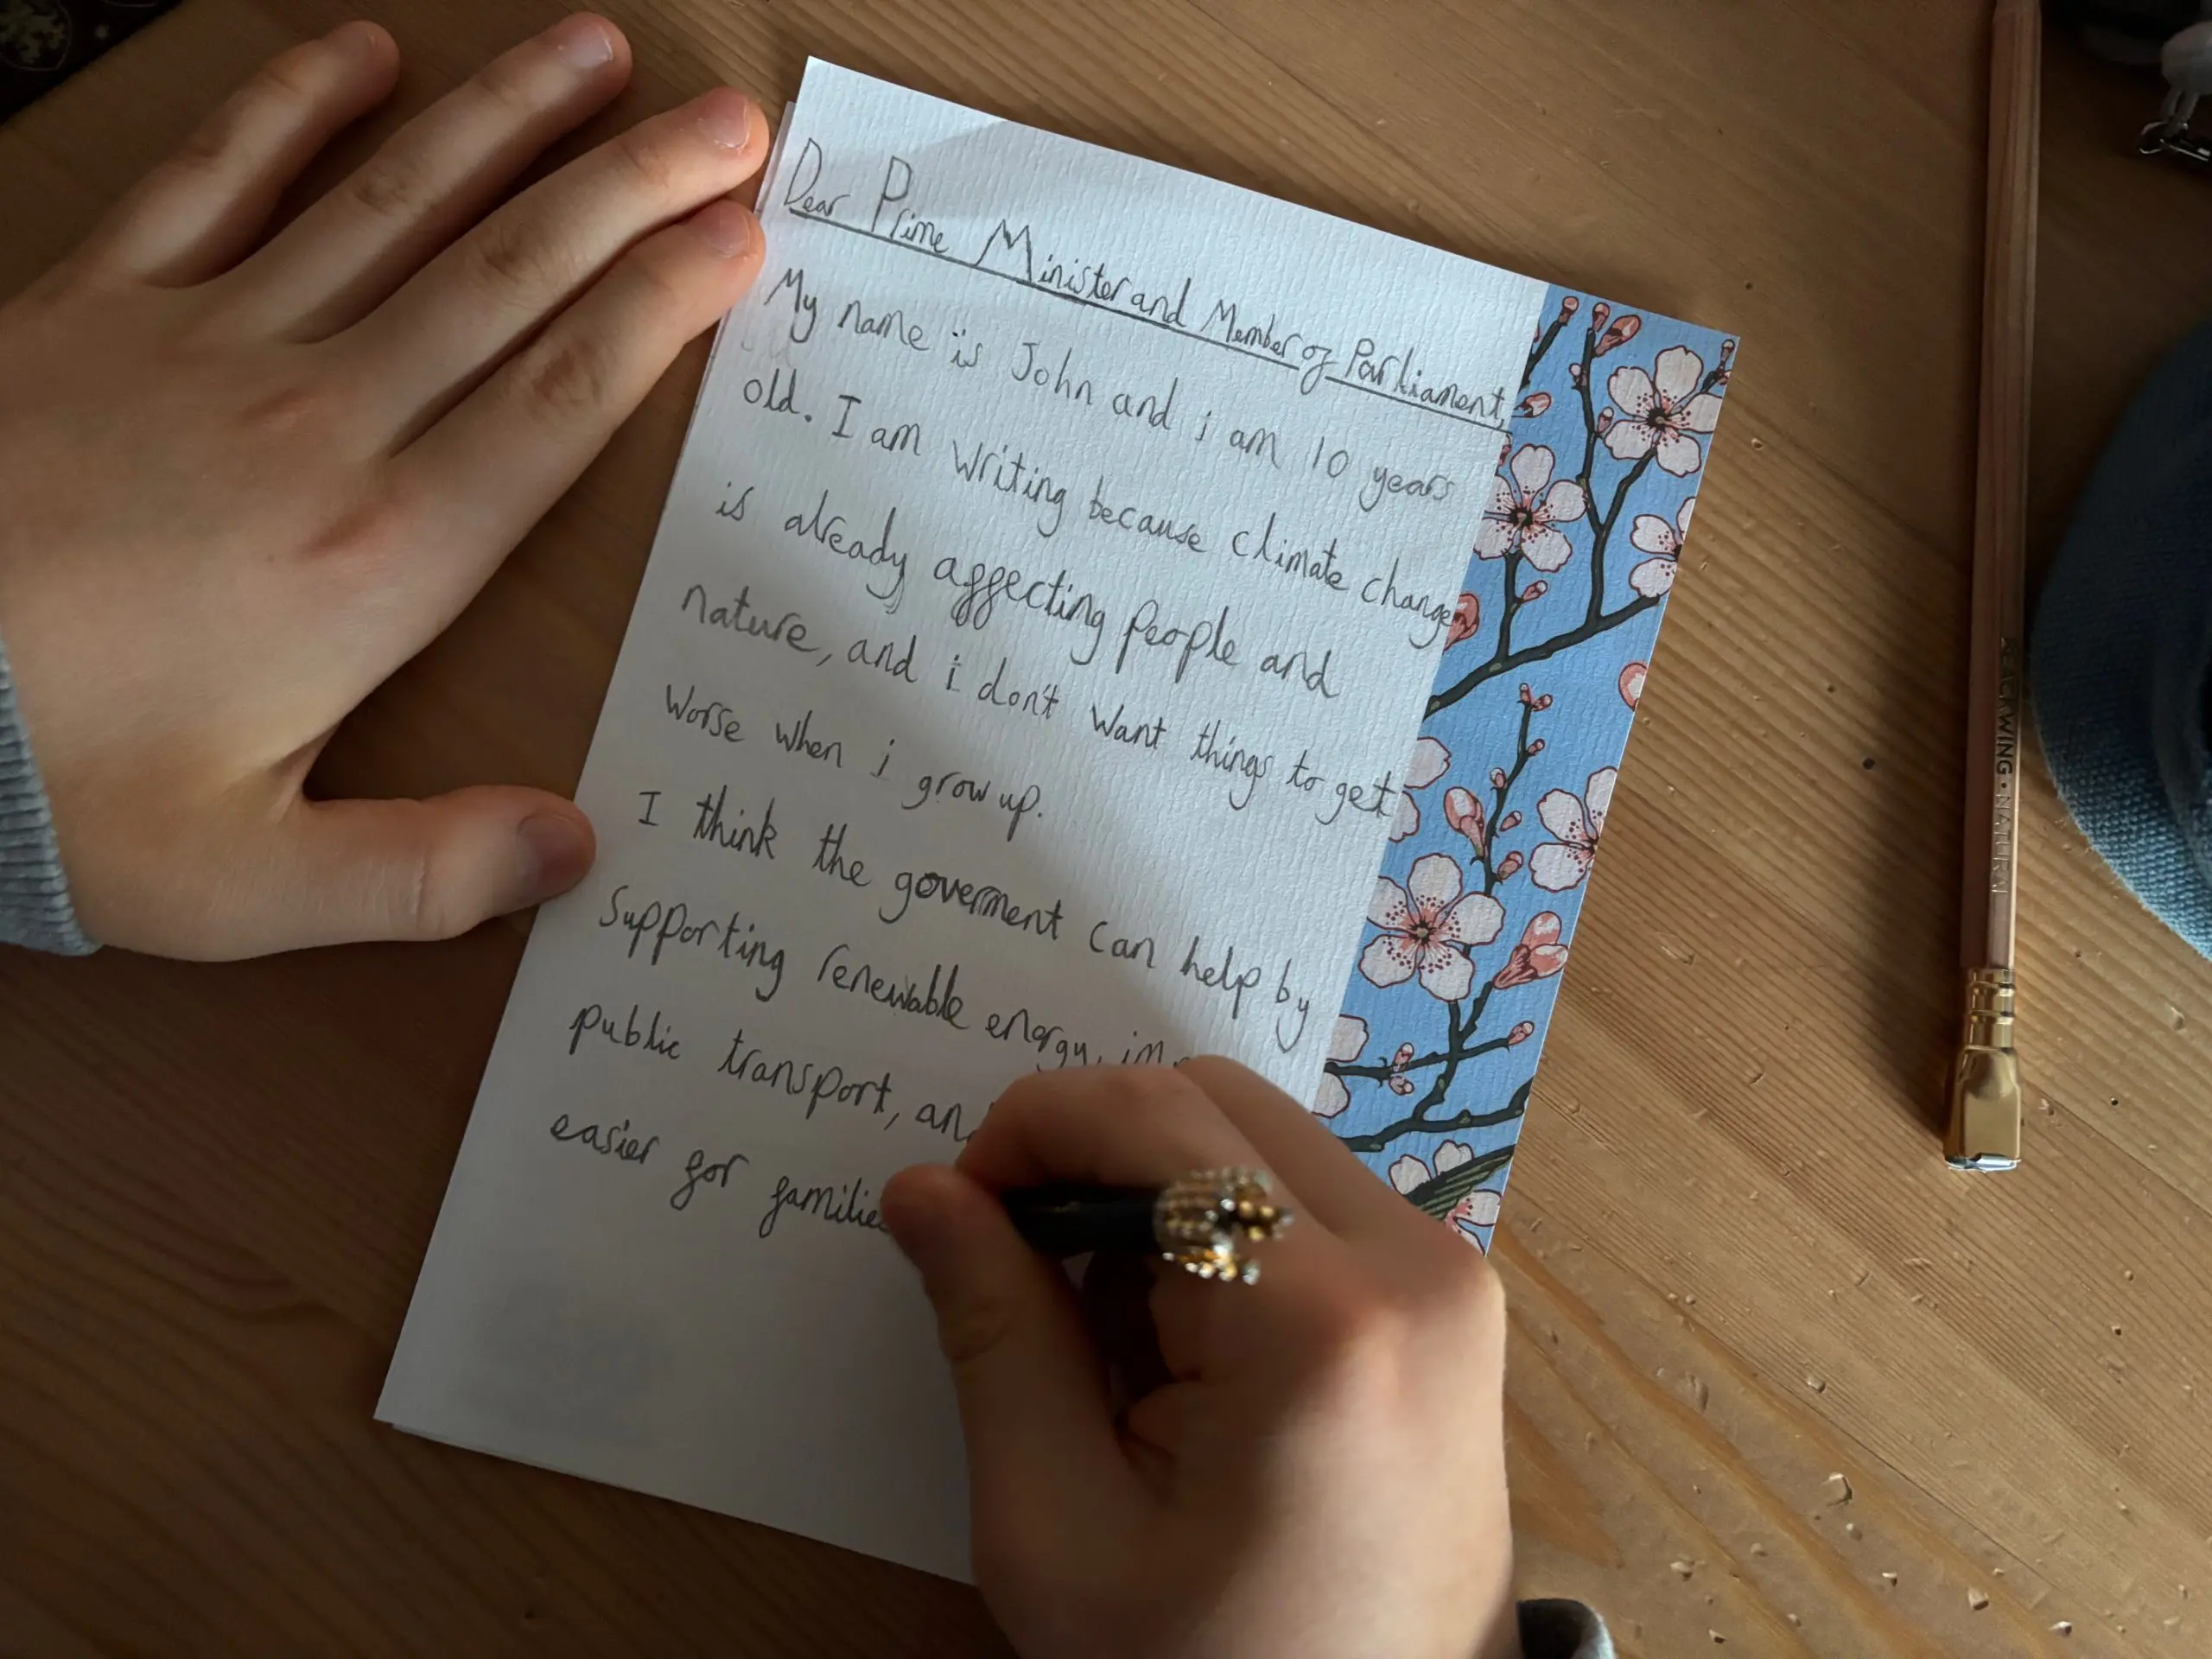 Dear Prime Minister and Member of Parliament,
My name is John and i am 10 years
old. I am writing because climate change
is already affecting people and
nature, and i don't want things to get
worse when i grow up.
I think the goverment can help by
supporting renewable energy,
public transport,
easier for
BLACKWING • NATURAL